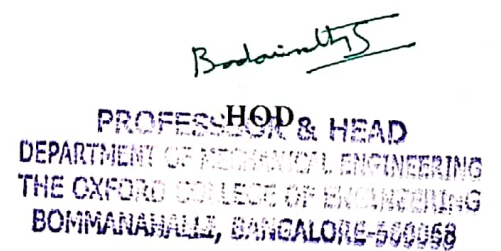 HOD
PROFESSOR & HEAD
DEPARTMENT OF MECHANICAL ENGINEERING
THE OXFORD COLLEGE OF ENGINEERING
BOMMANAHALLI, BANGALORE-560068